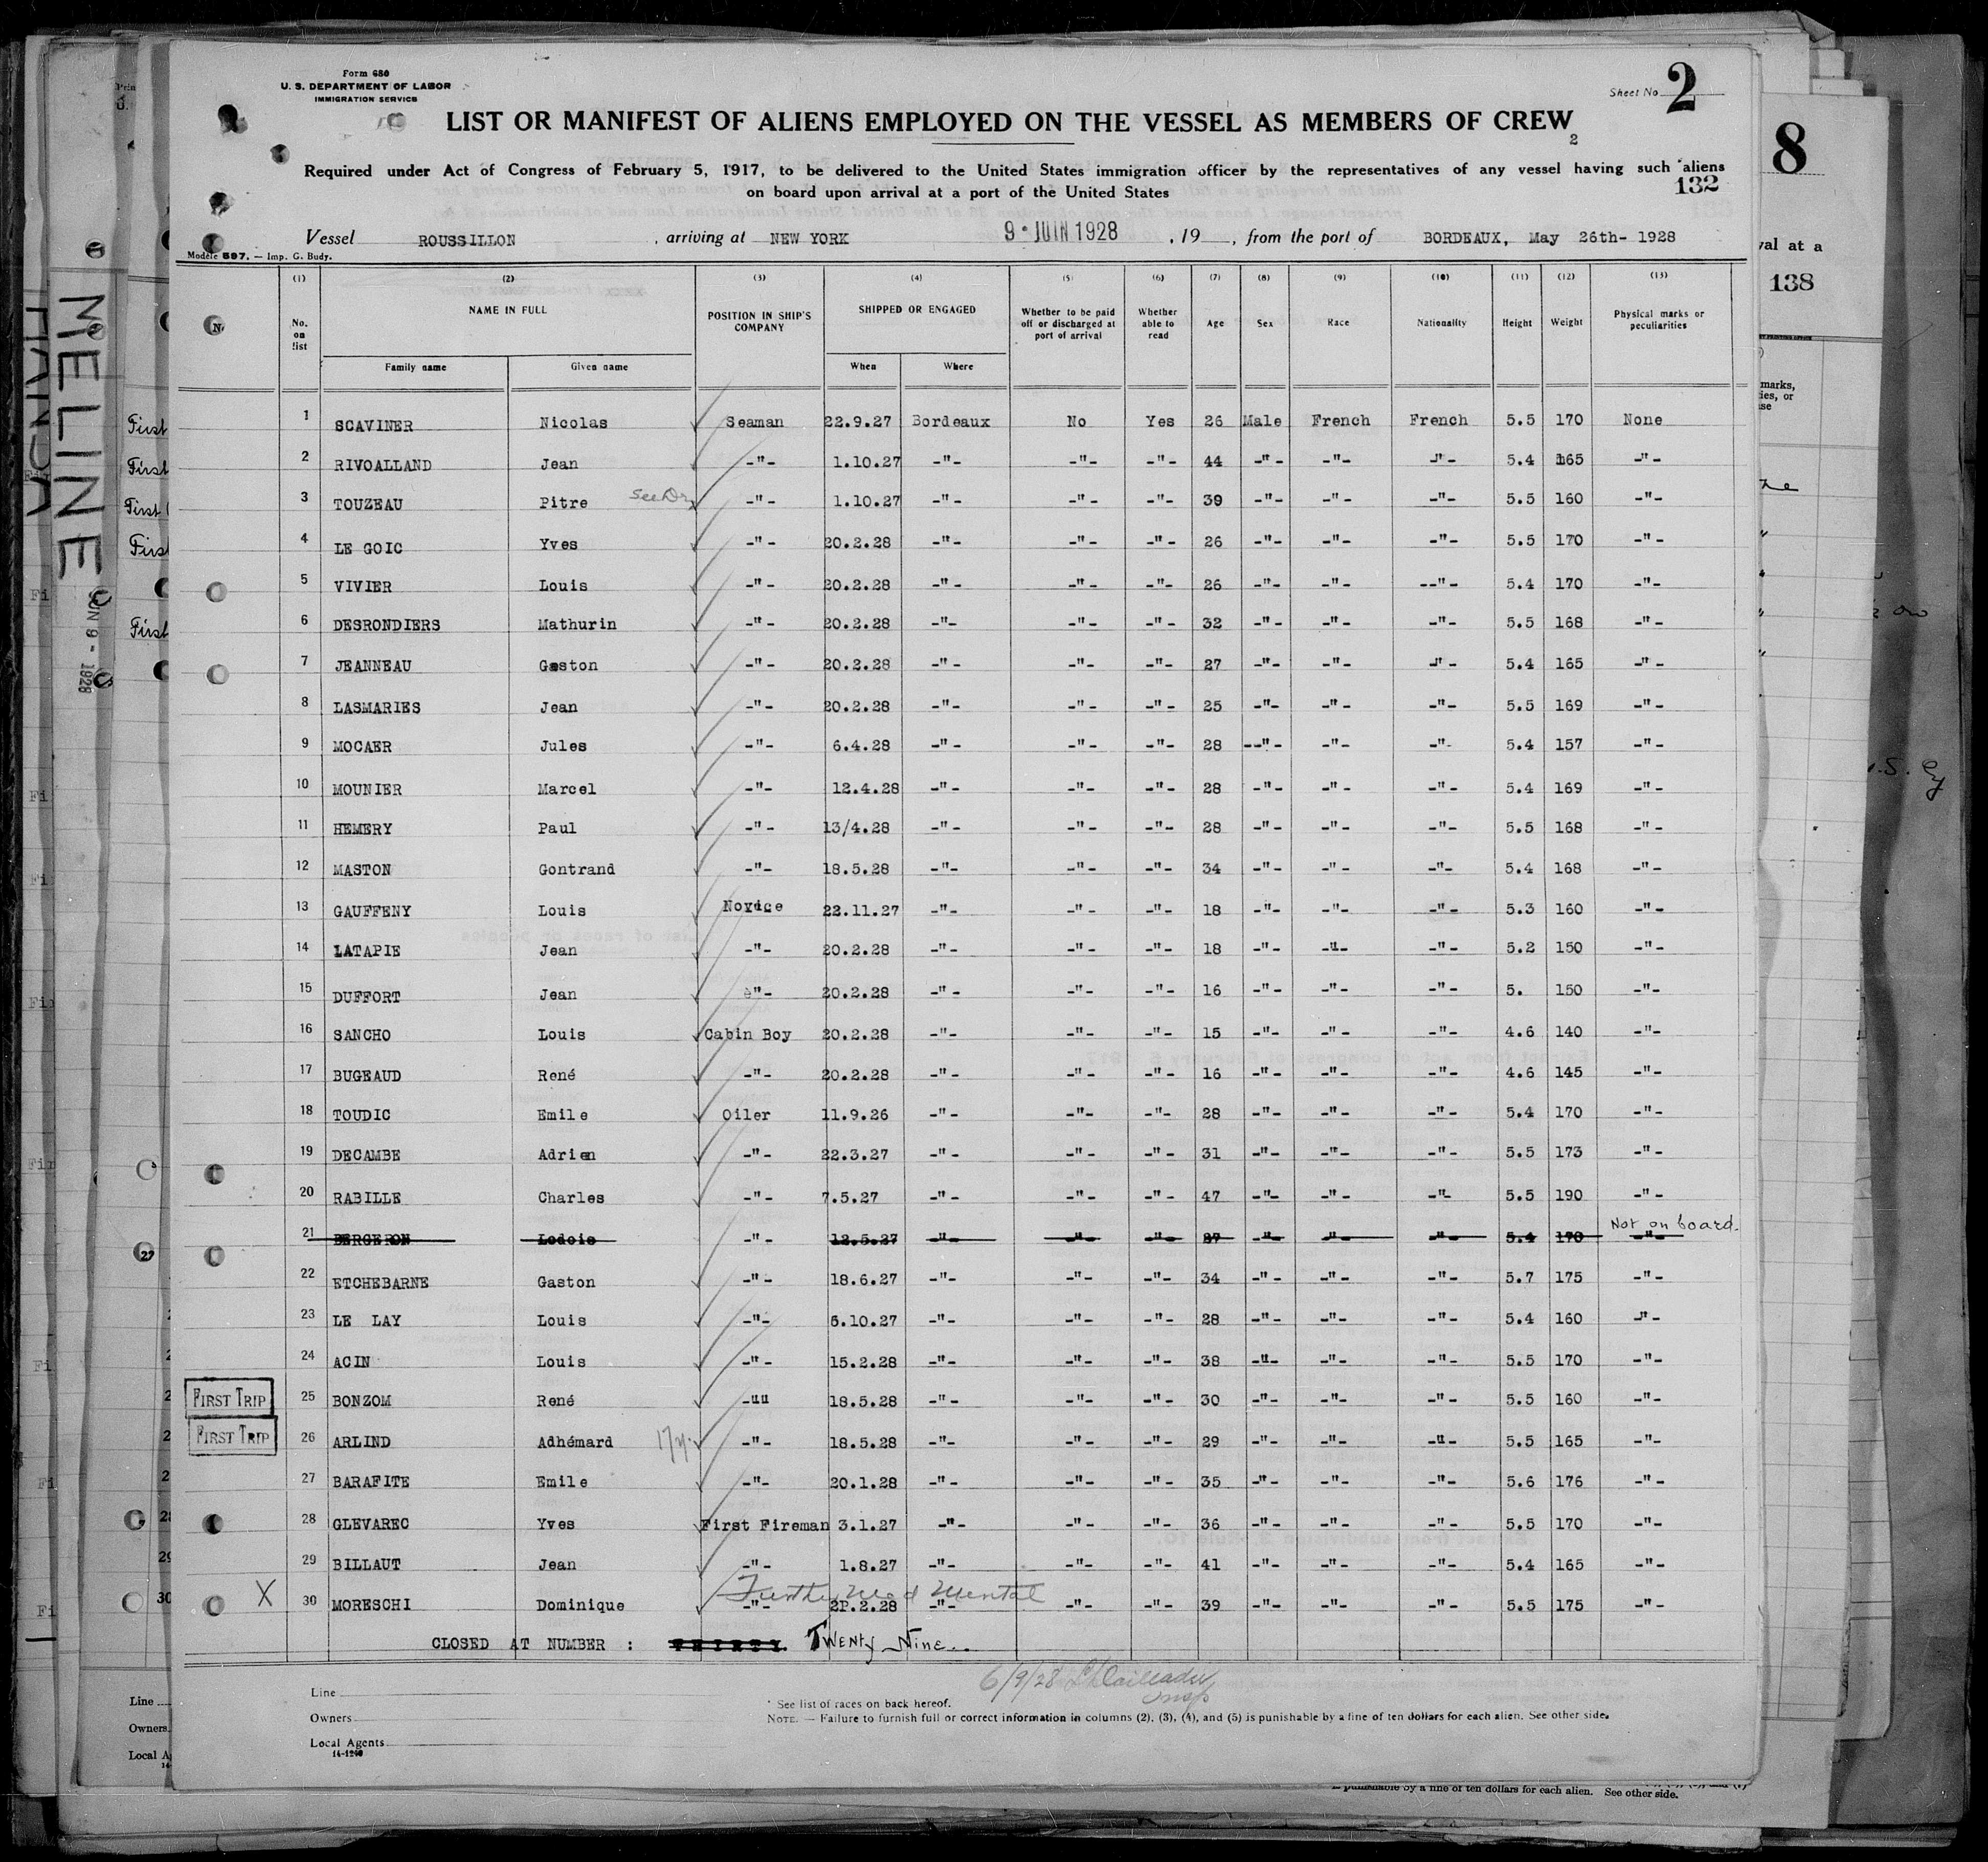 Form 680
U. S. DEPARTMENT OF LABOR
IMMIGRATION SERVICE
Sheet No. 2
LIST OR MANIFEST OF ALIENS EMPLOYED ON THE VESSEL AS MEMBERS OF CREW
2
8
Required under Act of Congress of February 5, 1917, to be delivered to the United States immigration officer by the representatives of any vessel having such aliens
on board upon arrival at a port of the United States
132
Vessel ROUSSILLON , arriving at NEW YORK 9 · JUIN 1928 , 19 , from the port of BORDEAUX, May 26th- 1928
val at a
138
Modèle 597. — Imp. G. Budy.
(1) (2) (3) (4) (5) (6) (7) (8) (9) (10) (11) (12) (13)
No. on list NAME IN FULL POSITION IN SHIP'S COMPANY SHIPPED OR ENGAGED Whether to be paid off or discharged at port of arrival Whether able to read Age Sex Race Nationality Height Weight Physical marks or peculiarities
Family name Given name When Where
1 SCAVINER Nicolas Seaman 22.9.27 Bordeaux No Yes 26 Male French French 5.5 170 None
2 RIVOALLAND Jean -"- 1.10.27 -"- -"- -"- 44 -"- -"- -"- 5.4 165 -"-
3 TOUZEAU Pitre See Dr -"- 1.10.27 -"- -"- -"- 39 -"- -"- -"- 5.5 160 -"-
4 LE GOIC Yves -"- 20.2.28 -"- -"- -"- 26 -"- -"- -"- 5.5 170 -"-
5 VIVIER Louis -"- 20.2.28 -"- -"- -"- 26 -"- -"- --"- 5.4 170 -"-
6 DESRONDIERS Mathurin -"- 20.2.28 -"- -"- -"- 32 -"- -"- -"- 5.5 168 -"-
7 JEANNEAU Gaston -"- 20.2.28 -"- -"- -"- 27 -"- -"- -"- 5.4 165 -"-
8 LASMARIES Jean -"- 20.2.28 -"- -"- -"- 25 -"- -"- -"- 5.5 169 -"-
9 MOCAER Jules -"- 6.4.28 -"- -"- -"- 28 --"- -"- -"- 5.4 157 -"-
10 MOUNIER Marcel -"- 12.4.28 -"- -"- -"- 28 -"- -"- -"- 5.4 169 -"-
11 HEMERY Paul -"- 13/4.28 -"- -"- -"- 28 -"- -"- -"- 5.5 168 -"-
12 MASTON Gontrand -"- 18.5.28 -"- -"- -"- 34 -"- -"- -"- 5.4 168 -"-
13 GAUFFENY Louis Novice 22.11.27 -"- -"- -"- 18 -"- -"- -"- 5.3 160 -"-
14 LATAPIE Jean -"- 20.2.28 -"- -"- -"- 18 -"- -"- -"- 5.2 150 -"-
15 DUFFORT Jean -"- 20.2.28 -"- -"- -"- 16 -"- -"- -"- 5. 150 -"-
16 SANCHO Louis Cabin Boy 20.2.28 -"- -"- -"- 15 -"- -"- -"- 4.6 140 -"-
17 BUGEAUD René -"- 20.2.28 -"- -"- -"- 16 -"- -"- -"- 4.6 145 -"-
18 TOUDIC Emile Oiler 11.9.26 -"- -"- -"- 28 -"- -"- -"- 5.4 170 -"-
19 DECAMBE Adrien -"- 22.3.27 -"- -"- -"- 31 -"- -"- -"- 5.5 173 -"-
20 RABILLE Charles -"- 7.5.27 -"- -"- -"- 47 -"- -"- -"- 5.5 190 -"-
21 BERGERON -"- 12.5.27 -"- -"- -"- 27 -"- -"- -"- 5.4 170 -"- Not on board.
22 ETCHEBARNE Gaston -"- 18.6.27 -"- -"- -"- 34 -"- -"- -"- 5.7 175 -"-
23 LE LAY Louis -"- 6.10.27 -"- -"- -"- 28 -"- -"- -"- 5.4 160 -"-
24 ACIN Louis -"- 15.2.28 -"- -"- -"- 38 -"- -"- -"- 5.5 170 -"-
FIRST TRIP 25 BONZOM René -"" 18.5.28 -"- -"- -"- 30 -"- -"- -"- 5.5 160 -"-
FIRST TRIP 26 ARLIND Adhémard -"- 18.5.28 -"- -"- -"- 29 -"- -"- -"- 5.5 165 -"-
27 BARAFITE Emile -"- 20.1.28 -"- -"- -"- 35 -"- -"- -"- 5.6 176 -"-
28 GLEVAREC Yves First Fireman 3.1.27 -"- -"- -"- 36 -"- -"- -"- 5.5 170 -"-
29 BILLAUT Jean -"- 1.8.27 -"- -"- -"- 41 -"- -"- -"- 5.4 165 -"-
Further Med Mental
X 30 MORESCHI Dominique -"- 2P.2.28 -"- -"- -"- 39 -"- -"- -"- 5.5 175 -"-
CLOSED AT NUMBER : THIRTY. Twenty Nine..
6/9/28
Insp
Line
Owners
Local Agents
14-1240
* See list of races on back hereof.
NOTE. — Failure to furnish full or correct information in columns (2), (3), (4), and (5) is punishable by a fine of ten dollars for each alien. See other side.
is punishable by a fine of ten dollars for each alien. See other side.
MELINE
HANSA
JUN 9 - 1928
First
First
First
First
First
marks,
ies, or
Line
Owners